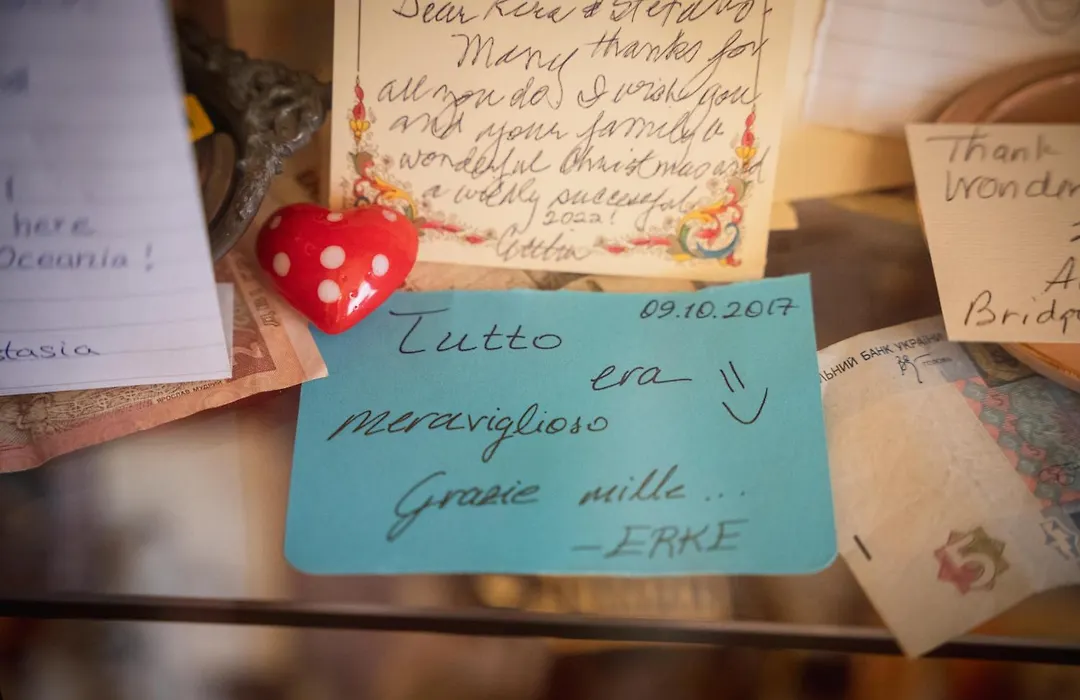 here
Oceania !
stasia
Dear Kira & Stefano
Many thanks for
all you do, I wish you
and your family a
wonderful Christmas and
a wildly successful
2022!
09.10.2017
Tutto
era
meraviglioso
Grazie mille...
- ERKE
Thank
Wonder
A
Bridg
ЯРОСЛАВ МУДРИЙ
ЛЬНИЙ БАНК УКРАЇНИ
5